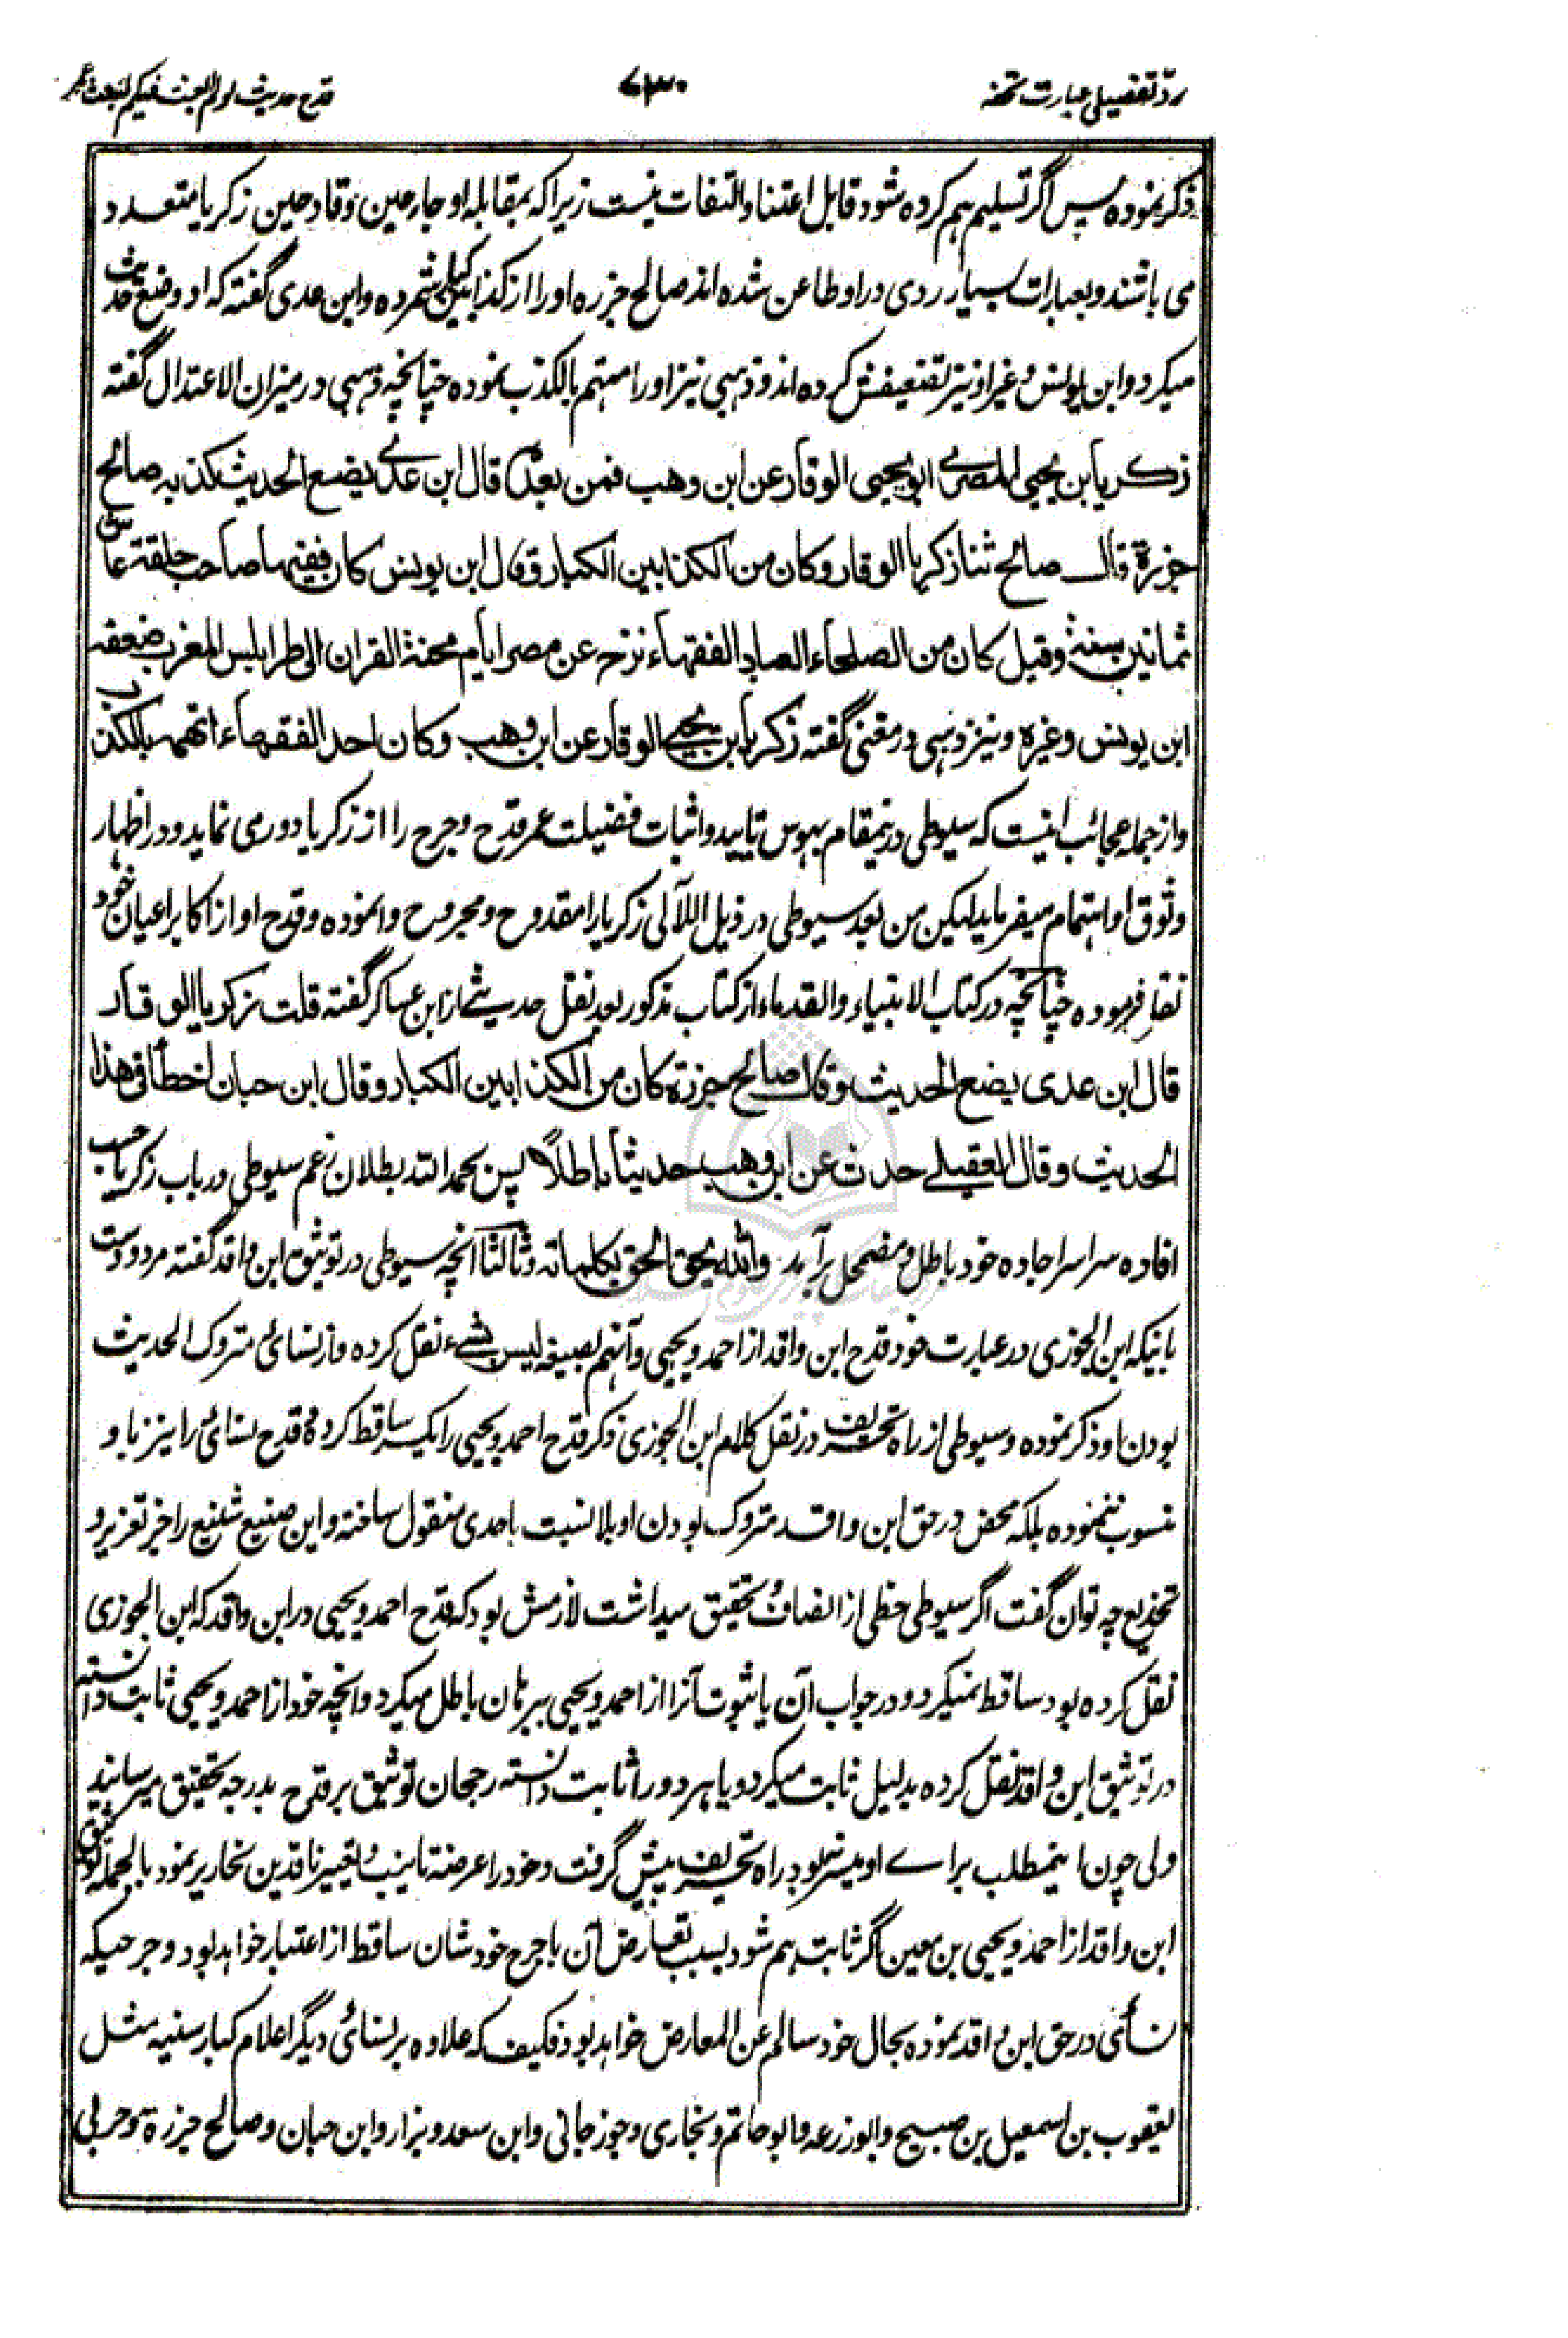 ردّ تفصیلی عبارت تحفہ
۶۳۰
قدح حدیث لو لم ابعث فیکم لبعث عمر
ذکر نموده پس اگر تسلیم هم کرده شود قابل اعتنا و التفات نیست زیرا که بمقابله او جارحین و قادحین زکریا متعدد
می باشند و بعبارات بسیار ردی در او طاعن شده اند صالح جزره او را از کذابین کبار شمرده و ابن عدی گفته که او وضع حدیث
میکرد و ابن یونس و غیر او نیز تضعیفش کرده اند و ذهبی نیز او را متهم بالکذب نموده چنانچه ذهبی در میزان الاعتدال گفته
زکریا بن یحیی المصری ابو یحیی الوقار عن ابن وهب فمن بعده قال ابن عدی یضع الحدیث کذبه صالح
جزرة قال صالح ثنا زکریا الوقار وکان من الکذابین الکبار وقال ابن یونس کان فقیها صاحب حلقة عاش
ثمانین سنة وقیل کان من الصلحاء العباد الفقهاء نزح عن مصر ایام محنة القران الی طرابلس المغرب ضعفه
ابن یونس وغیره و نیز ذهبی در مغنی گفته زکریا بن یحیی الوقار عن ابن وهب وکان احد الفقهاء اتهم بالکذب
و از جمله عجائب اینست که سیوطی درینمقام بهوس تایید و اثبات فضیلت عمر قدح و جرح را از زکریا دور می نماید و در اظهار
وثوق او اهتمام میفرماید لیکن من بعد سیوطی در ذیل اللآلی زکریا را مقدوح و مجروح وانموده و قدح او از اکابر اعیان خود
نقل فرموده چنانچه در کتاب الانبیاء والقدماء از کتاب مذکور بعد نقل حدیثی از ابن عساکر گفته قلت زکریا الوقار
قال ابن عدی یضع الحدیث وقال صالح جزرة کان من الکذابین الکبار وقال ابن حبان اخطأ فی هذا
الحدیث وقال العقیلی حدث عن ابن وهب حدیثا باطلاً پس بحمد الله بطلان زعم سیوطی در باب زکریا حسب
افاده سراسر اجاده خود باطل و مضمحل برآمد والله یحق الحق بکلماته و ثالثا آنچه سیوطی در توثیق ابن واقد گفته مردودست
باینکه ابن الجوزی در عبارت خود قدح ابن واقد از احمد و یحیی و آنهم بصیغه لیس بشیء نقل کرده و از نسائی متروک الحدیث
بودن او ذکر نموده و سیوطی از راه تحریف در نقل کلام ابن الجوزی ذکر قدح احمد و یحیی را یکسر ساقط کرده و قدح نسائی را نیز باو
منسوب ننموده بلکه محض در حق ابن واقد متروک بودن او بلا نسبت باحدی منقول ساخته و این صنیع شنیع را جز تغریر و
تخدیع چه توان گفت اگر سیوطی حظی از انصاف و تحقیق میداشت لازمش بود که قدح احمد و یحیی در ابن واقد که ابن الجوزی
نقل کرده بود ساقط نمیکرد و در جواب آن یا ثبوت آنرا از احمد و یحیی ببرهان باطل میکرد و آنچه خود از احمد و یحیی ثابت دانسته
در توثیق ابن واقد نقل کرده بدلیل ثابت میکرد و یا هر دو را ثابت دانسته رجحان توثیق بر قدح بدرجه تحقیق میرسانید
ولی چون اینمطلب برای او میسر نبود راه تحریف پیش گرفت و خود را عرضه تانیب و تعییر ناقدین نحاریر نمود بالجمله توثیق
ابن واقد از احمد و یحیی بن معین اگر ثابت هم شود بسبب تعارض آن با جرح خودشان ساقط از اعتبار خواهد بود و جرحیکه
نسائی در حق ابن واقد نموده بحال خود سالم عن المعارض خواهد بود فکیف که علاوه بر نسائی دیگر اعلام کبار سنیه مثل
یعقوب بن اسمعیل بن صبیح و ابو زرعه و ابو حاتم و بخاری و جوزجانی و ابن سعد و بزار و ابن حبان و صالح جزرة و حربی